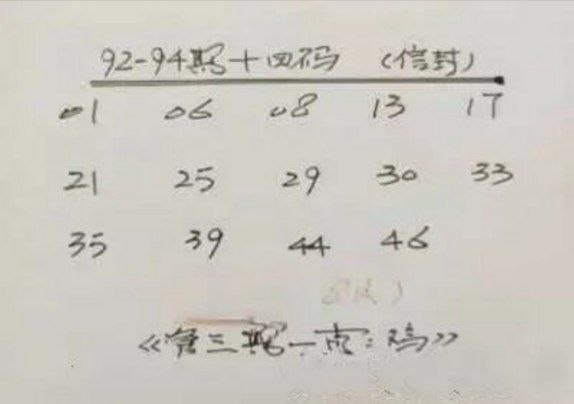 92-94期十四码 (信封)
01 06 08 13 17
21 25 29 30 33
35 39 44 46
《第三期一肖:鸡》